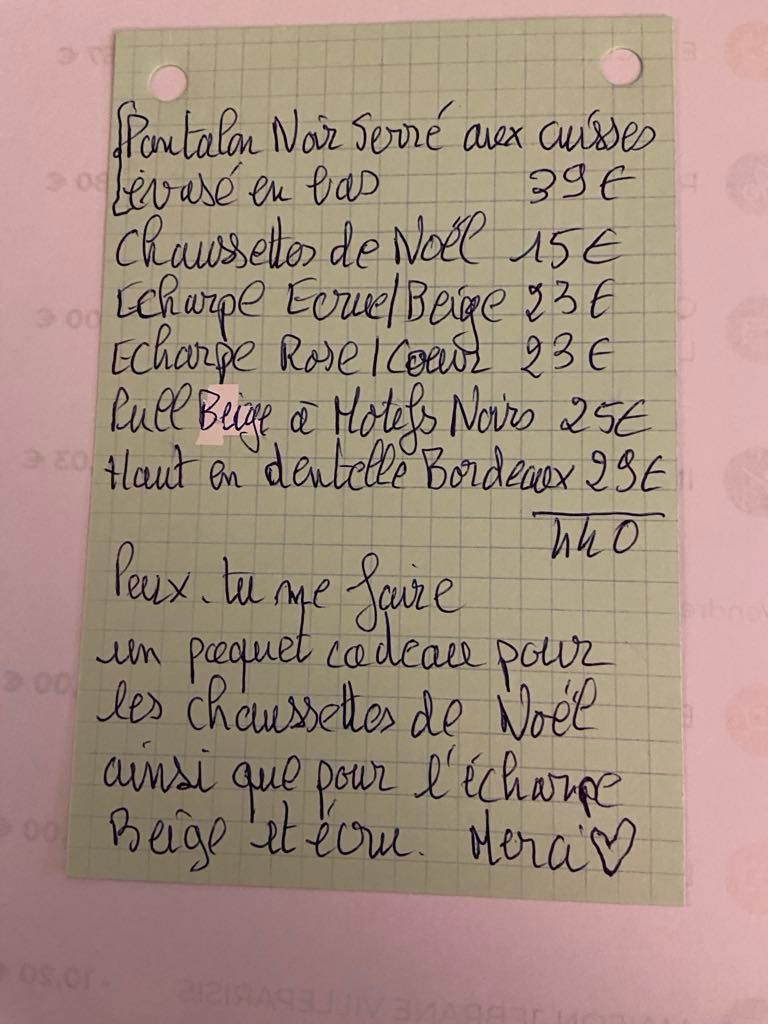 Pantalon Noir Serré aux cuisses
évasé en bas 39€
Chaussettes de Noël 15€
Echarpe Ecrue/Beige 23€
Echarpe Rose/Coeur 23€
Pull Beige à Motifs Noirs 25€
Haut en dentelle Bordeaux 29€
440
Peux-tu me faire
un paquet cadeau pour
les chaussettes de Noël
ainsi que pour l'écharpe
Beige et écru. Merci ♡